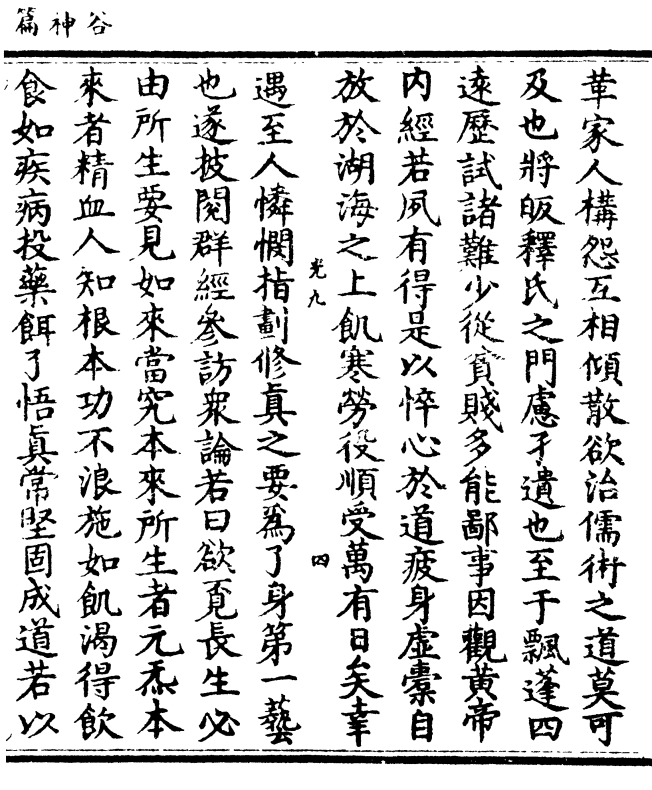 谷神篇
葷家人構怨互相傾散欲治儒術之道莫可
及也將皈釋氏之門慮孑遺也至于飄蓬四
遠歷試諸難少從貧賤多能鄙事因觀黃帝
内經若夙有得是以悴心於道疲身虛橐自
放於湖海之上飢寒勞役順受萬有日矣幸
光九
四
遇至人憐憫指劃修真之要為了身第一藝
也遂披閱群經參訪衆論若曰欲覓長生必
由所生要見如來當究本來所生者元炁本
來者精血人知根本功不浪施如飢渴得飲
食如疾病投藥餌了悟真常堅固成道若以